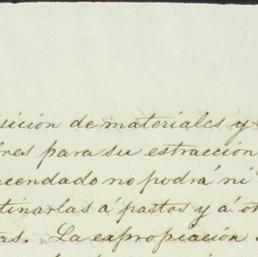 sición de materiales y
res para su estracción
acendado no podrá ni
tinarlas á pastos y á ot
as. La expropiación